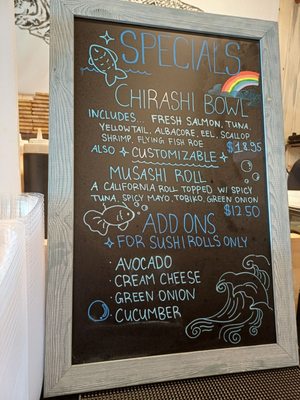 SPECIALS
CHIRASHI BOWL
INCLUDES... FRESH SALMON, TUNA
YELLOWTAIL, ALBACORE, EEL, SCALLOP
SHRIMP, FLYING FISH ROE
ALSO CUSTOMIZABLE $18.95
MUSASHI ROLL
A CALIFORNIA ROLL TOPPED W/ SPICY
TUNA, SPICY MAYO, TOBIKO, GREEN ONION
$12.50
ADD ONS
FOR SUSHI ROLLS ONLY
· AVOCADO
· CREAM CHEESE
· GREEN ONION
· CUCUMBER